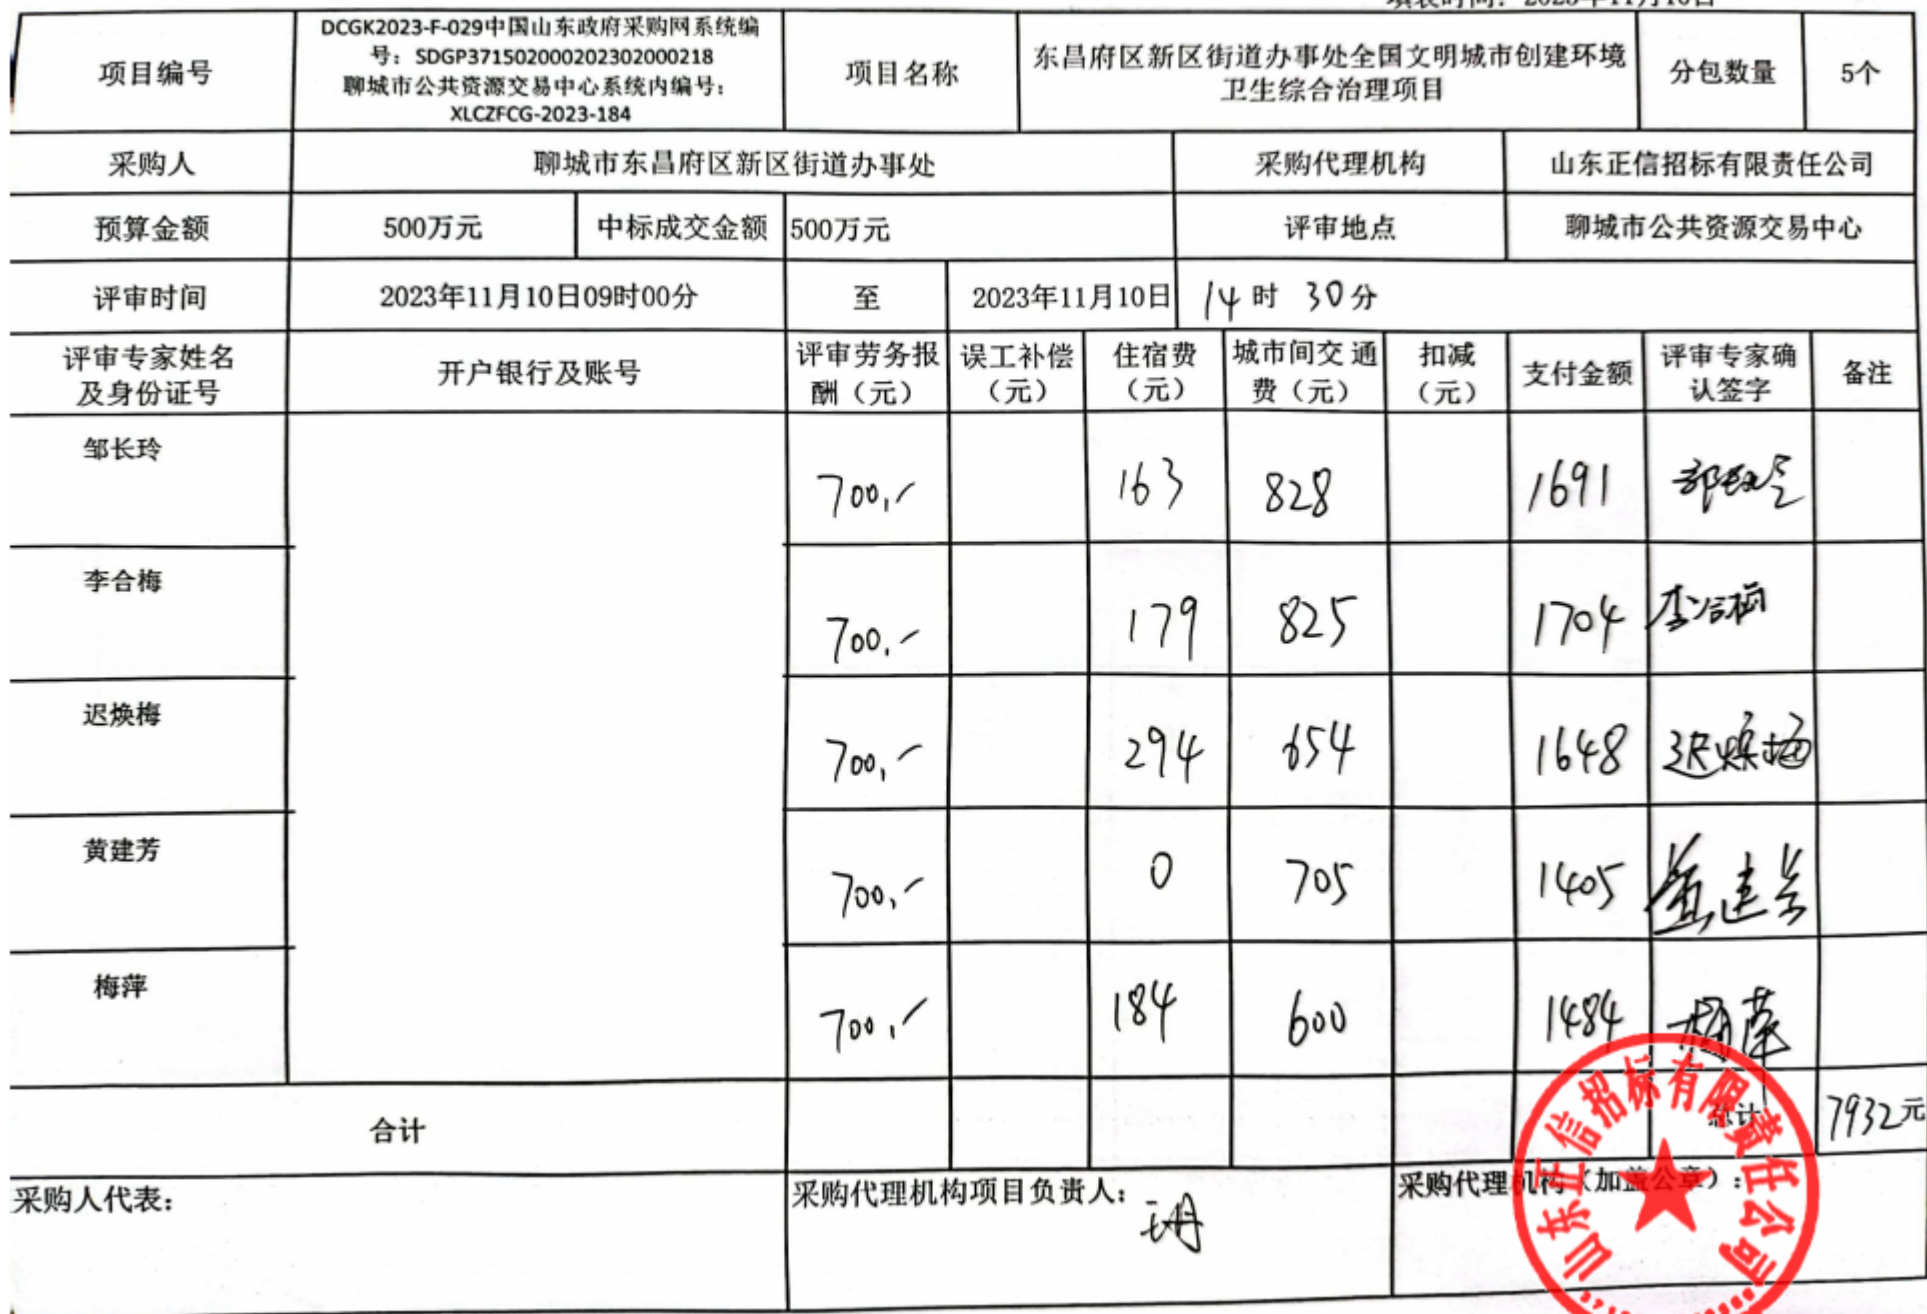 填表时间：2023年11月10日
项目编号
DCGK2023-F-029中国山东政府采购网系统编
号：SDGP371502000202302000218
聊城市公共资源交易中心系统内编号：
XLCZFCG-2023-184
项目名称
东昌府区新区街道办事处全国文明城市创建环境
卫生综合治理项目
分包数量
5个
采购人
聊城市东昌府区新区街道办事处
采购代理机构
山东正信招标有限责任公司
预算金额
500万元
中标成交金额
500万元
评审地点
聊城市公共资源交易中心
评审时间
2023年11月10日09时00分
至
2023年11月10日
14时 30分
评审专家姓名
及身份证号
开户银行及账号
评审劳务报
酬（元）
误工补偿
（元）
住宿费
（元）
城市间交通
费（元）
扣减
（元）
支付金额
评审专家确
认签字
备注
邹长玲
700,-
163
828
1691
邹长玲
李合梅
700,-
179
825
1704
李合梅
迟焕梅
700,-
294
654
1648
迟焕梅
黄建芳
700,-
0
705
1405
黄建芳
梅萍
700,-
184
600
1484
梅萍
合计
总计
7932元
采购人代表：
采购代理机构项目负责人：
采购代理机构（加盖公章）：
山东正信招标有限责任公司